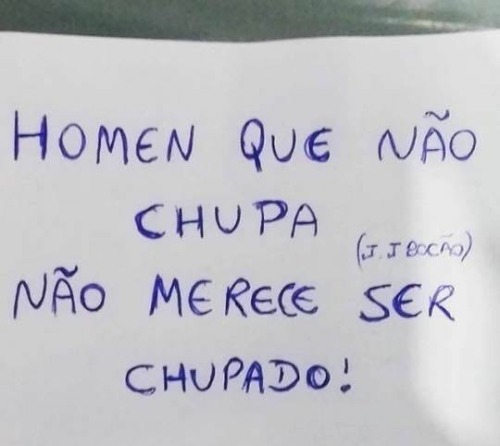 HOMEN QUE NÃO
CHUPA
(J. J BOCÃO)
NÃO MERECE SER
CHUPADO!